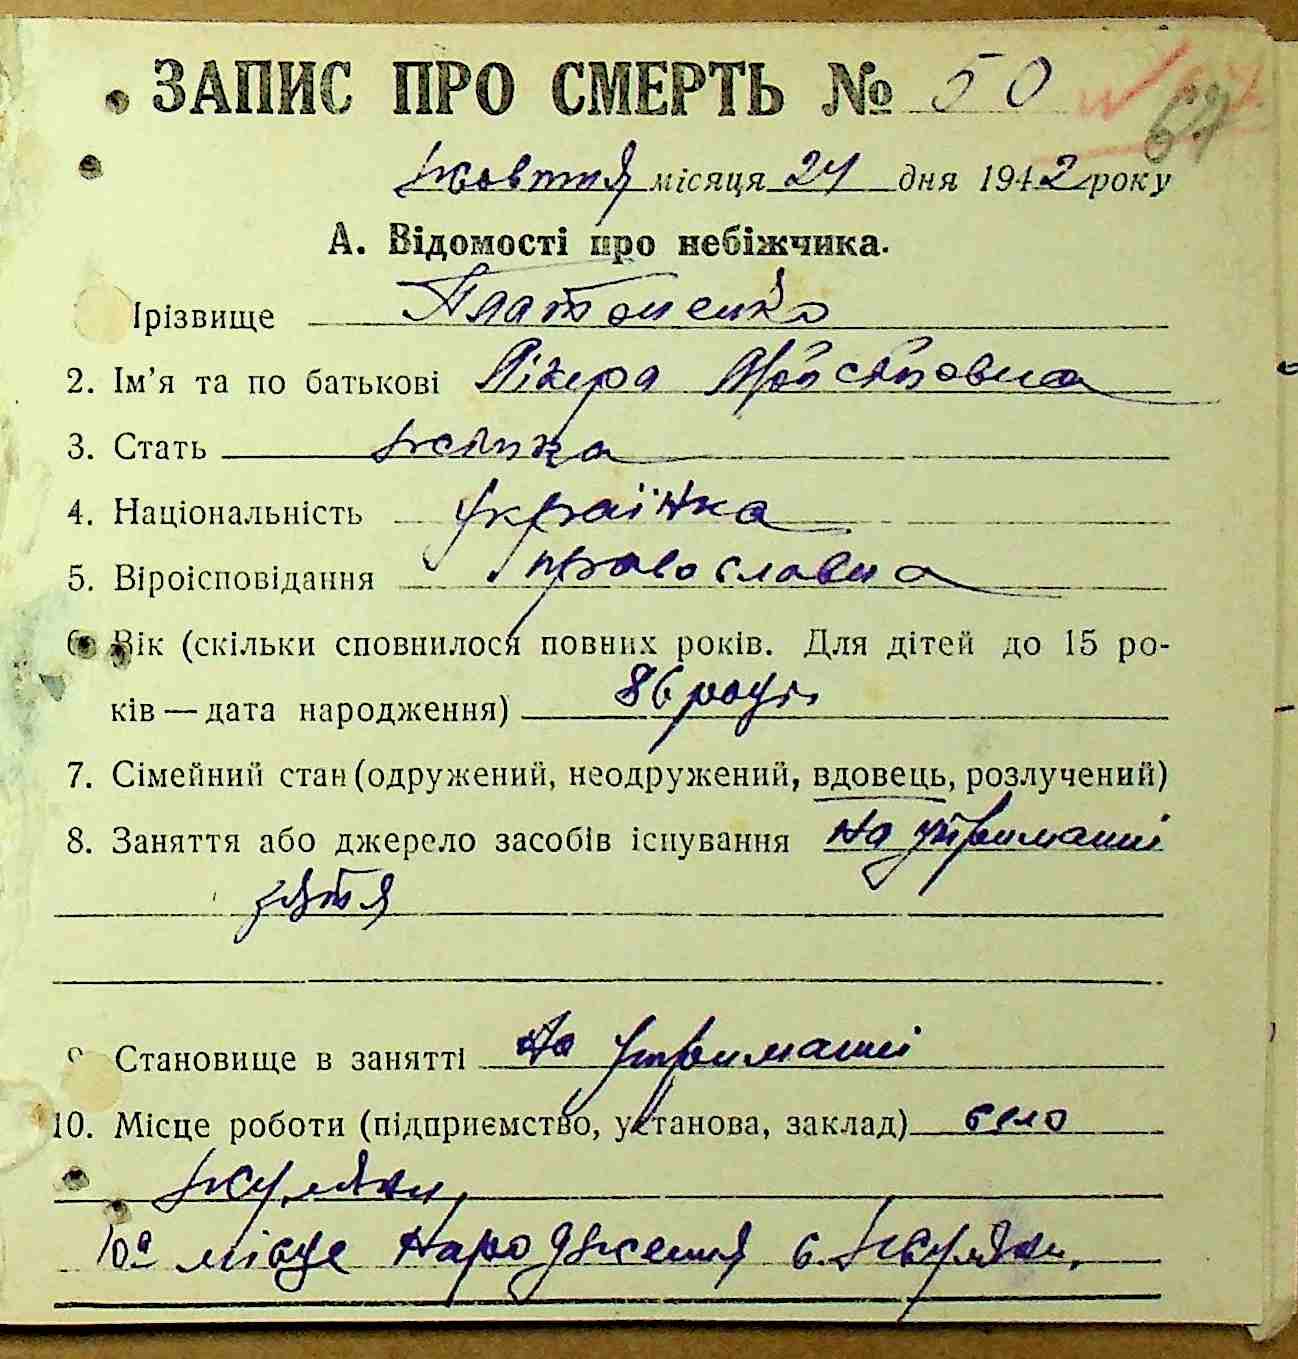 ЗАПИС ПРО СМЕРТЬ № 50
67
жовтня місяця 24 дня 1942 року
А. Відомості про небіжчика.
різвище Платоненко
2. Ім’я та по батькові Лікера
3. Стать жінка
4. Національність українка
5. Віроісповідання православна
6. Вік (скільки сповнилося повних років. Для дітей до 15 ро-
ків — дата народження) 86 років
7. Сімейний стан (одружений, неодружений, вдовець, розлучений)
8. Заняття або джерело засобів існування на утриманні
зятя
9. Становище в занятті на утриманні
10. Місце роботи (підприємство, установа, заклад) село
Жуляни,
10а місце народження с. Жуляни.